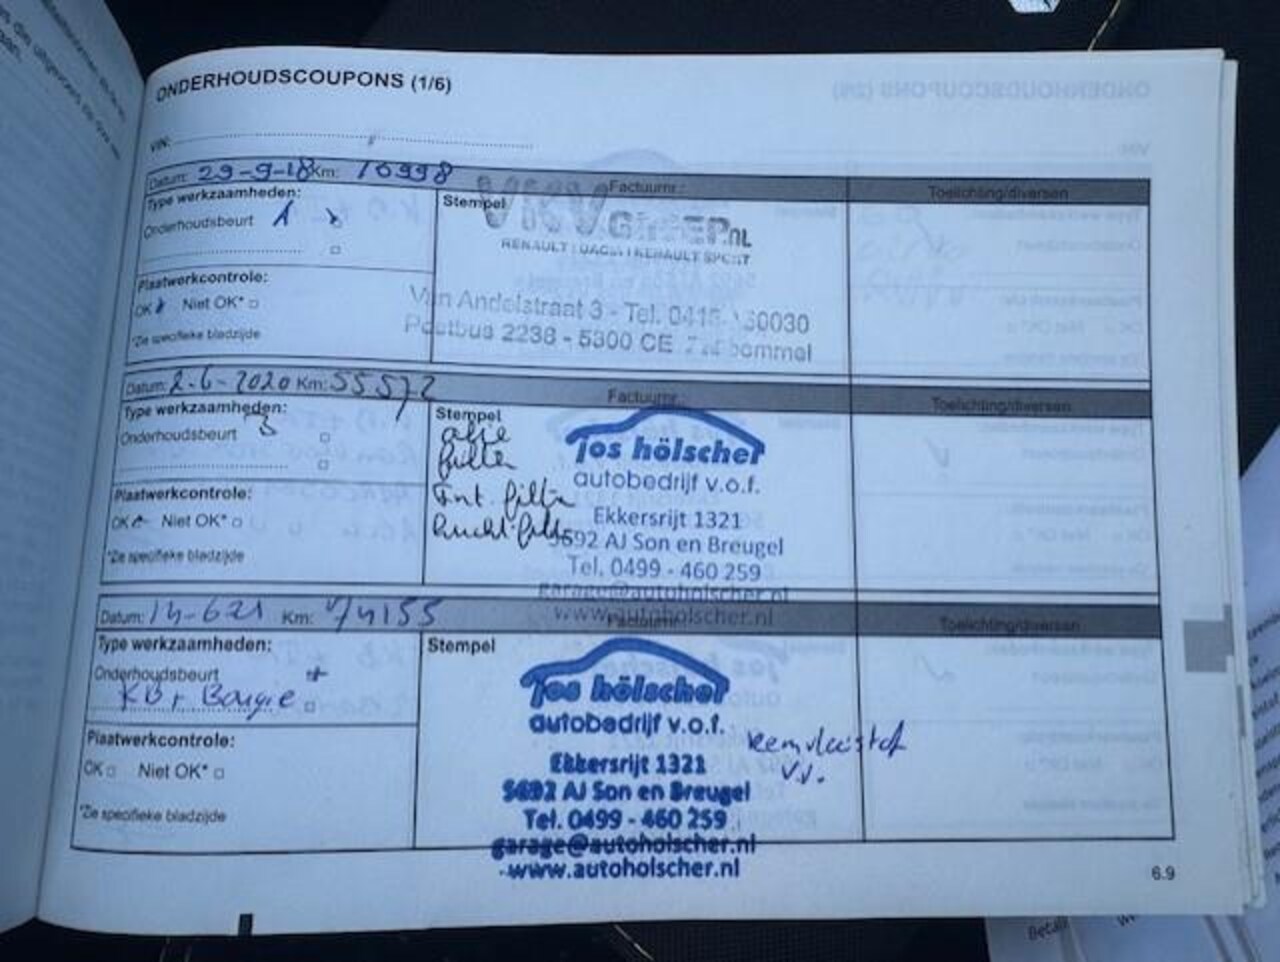 ONDERHOUDSCOUPONS (1/6)
VIN:
Datum: 29-9-18 Km: 16998 Factuurnr.: Toelichting/diversen
Type werkzaamheden:
Onderhoudsbeurt A
Stempel
VKVGROEP.NL
RENAULT | DACIA | RENAULT SPORT
Plaatwerkcontrole:
OK Niet OK*
*Zie specifieke bladzijde
Van Andelstraat 3 - Tel. 0418 60030
Postbus 2238 - 5300 CE Zaltbommel
Datum: 2-6-2020 Km: 55572 Factuurnr.: Toelichting/diversen
Type werkzaamheden:
Onderhoudsbeurt
Stempel
olie
filter
Int. filter
lucht filter
Jos hölscher
autobedrijf v.o.f.
Ekkersrijt 1321
5692 AJ Son en Breugel
Tel. 0499 - 460 259
garage@autoholscher.nl
www.autoholscher.nl
Plaatwerkcontrole:
OK Niet OK*
*Zie specifieke bladzijde
Datum: 14-621 Km: 74155 Factuurnr.: Toelichting/diversen
Type werkzaamheden:
Onderhoudsbeurt
KB + Bougie
Stempel
Jos hölscher
autobedrijf v.o.f.
Ekkersrijt 1321
5692 AJ Son en Breugel
Tel. 0499 - 460 259
garage@autoholscher.nl
www.autoholscher.nl
remvloeistof
v.v.
Plaatwerkcontrole:
OK Niet OK*
*Zie specifieke bladzijde
6.9